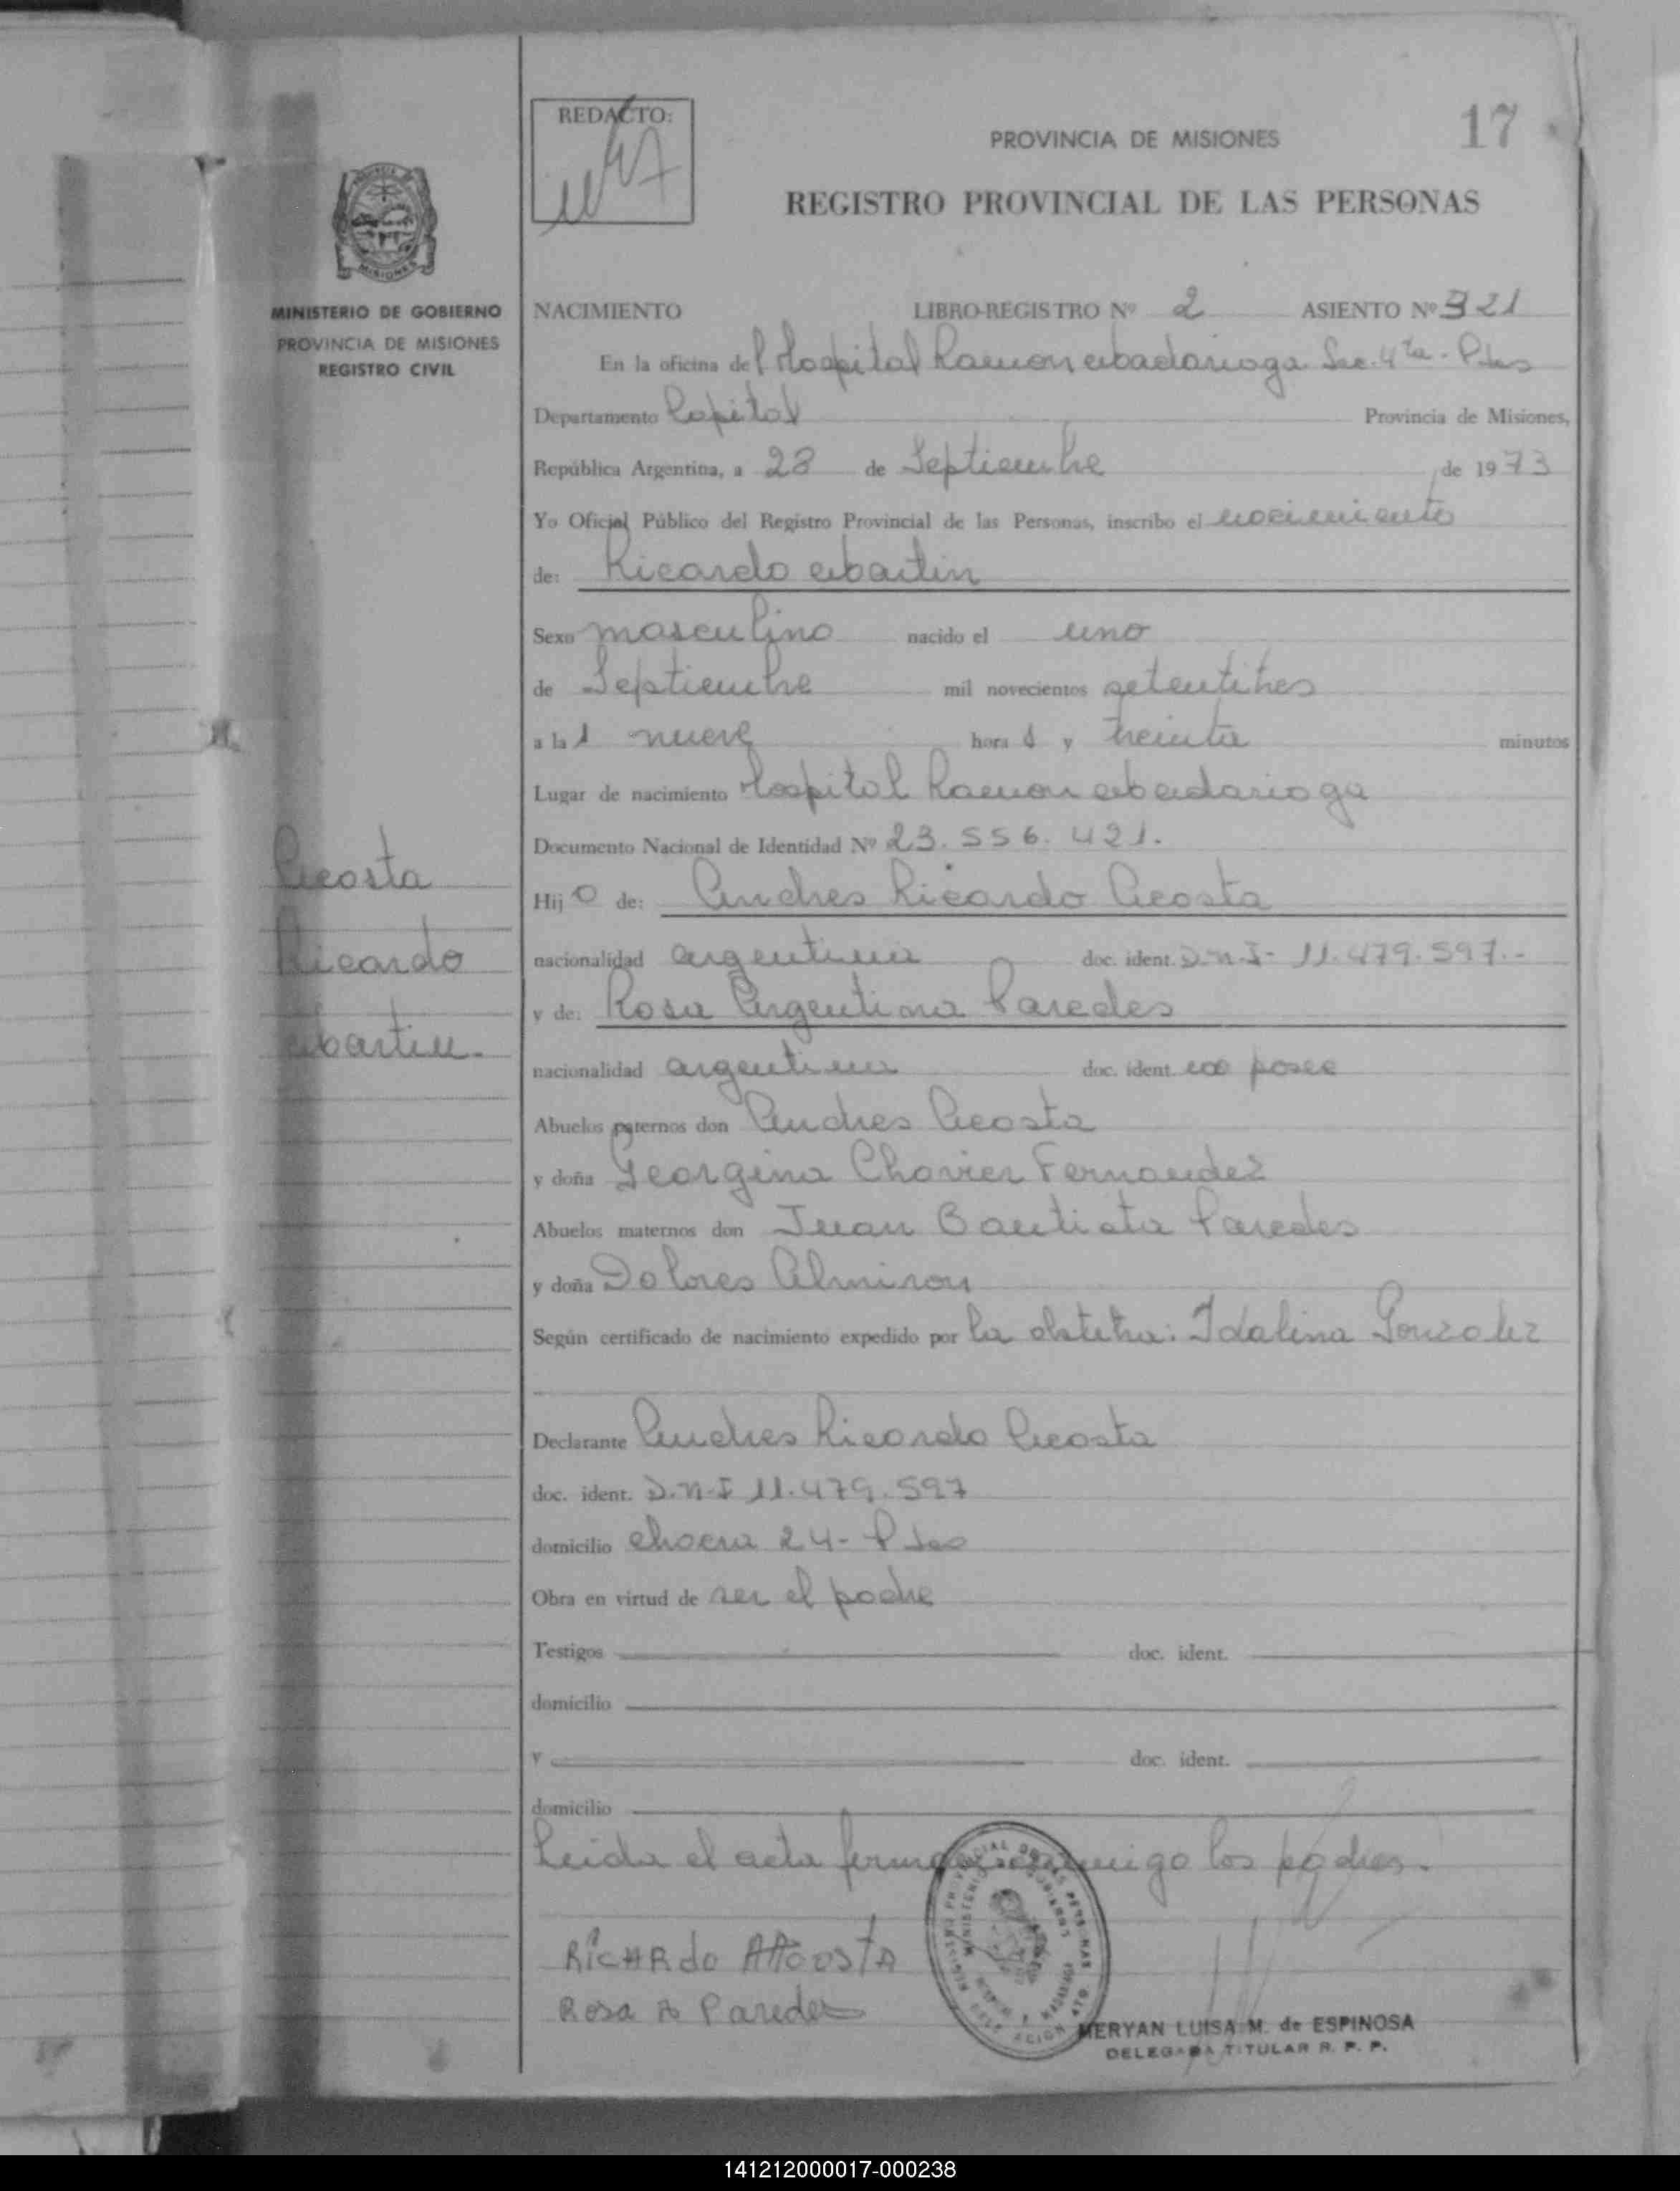 REDACTO:
17
PROVINCIA DE MISIONES
REGISTRO PROVINCIAL DE LAS PERSONAS
MISIONES
MINISTERIO DE GOBIERNO
PROVINCIA DE MISIONES
REGISTRO CIVIL
NACIMIENTO LIBRO-REGISTRO Nº 2 ASIENTO Nº 321
En la oficina del Hospital Ramon Madariaga Sec. 4ta. Pdas
Departamento Capital Provincia de Misiones,
República Argentina, a 28 de Septiembre de 1973
Yo Oficial Público del Registro Provincial de las Personas, inscribo el nacimiento
de: Ricardo Martin
Sexo masculino nacido el uno
de Septiembre mil novecientos setentitres
a las nueve horas y treinta minutos
Lugar de nacimiento Hospital Ramon Madariaga
Documento Nacional de Identidad Nº 23.556.421.
Acosta
Ricardo
Martin.
Hijo de: Andres Ricardo Acosta
nacionalidad argentina doc. ident. D.N.I- 11.479.597.-
y de: Rosa Argentina Paredes
nacionalidad argentina doc. ident. no posee
Abuelos paternos don Andres Acosta
y doña Georgina Chavier Fernandez
Abuelos maternos don Juan Bautista Paredes
y doña Dolores Almiron
Según certificado de nacimiento expedido por la obstetra: Idalina Gonzalez
Declarante Andres Ricardo Acosta
doc. ident. D.N.I 11.479.597
domicilio chacra 24- Pdas
Obra en virtud de ser el padre
Testigos doc. ident.
domicilio
y doc. ident.
domicilio
Leida el acta firman conmigo los padres.
RiCHARdo ACOSTA
Rosa A Paredes
MERYAN LUISA M. de ESPINOSA
DELEGADA TITULAR R. P. P.
141212000017-000238